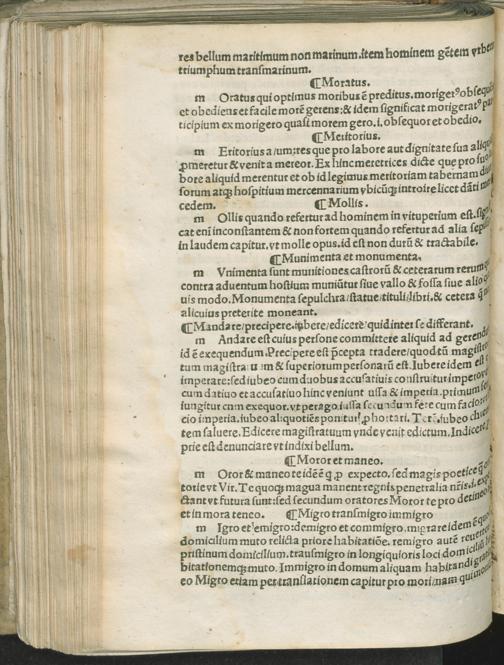 res bellum maritimum non marinum. item hominem gẽtem vrbem
triumphum transmarinum.
¶Moratus.
m Oratus qui optimus moribus ẽ preditus. moriger⁹ obsequẽs
et obediens et facile morẽ gerens: & idem significat morigerat⁹ par
ticipium ex morigero quasi morem gero. i. obsequor et obedio.
¶Meritorius.
m Eritorius a/um: res que pro labore aut dignitate sua aliquid
ꝓmeretur & venit a mereor. Ex hinc meretrices dicte que pro suo la
bore aliquid merentur et ob id legimus meritoriam tabernam
forum atq; hospitium mercennarium vbicũq; introire licet dãti
cedem. ¶Mollis.
m Ollis quando refertur ad hominem in vituperium est. signifi
cat eni inconstantem & non fortem quando refertur ad alia sepius
in laudem capitur. vt molle opus. id est non durũ & tractabile.
¶Munimenta et monumenta.
m Vnimenta sunt munitiones castrorũ & ceterarum rerum
contra aduentum hostium muniũtur siue vallo & fossa siue alio
uis modo. Monumenta sepulchra/statue/tituli/libri. & cetera
alicuius preterite moneant.
¶Mandare/precipere. iubere/edicere/quid inter se differant.
m Andare est cuius persone committere aliquid ad gerendũ
id ẽ exequendum. Precipere est p̃cepta tradere/quod tñ magistro
tum magistratuum & superiorum personarũ est. Iubere idem est
imperare: sed iubeo cum duobus accusatiuis construitur impero
cum datiuo et accusatiuo hinc veniunt iussa & imperia. primum
iungitur cum exequor. vt perago. iussa secundum fere cum facio
cio imperia. iubeo aliquotiẽs ponitur/p hortari. iubeo
tem saluere. Edicere magistratuum vnde venit edictum. Indicere
prie est denunciare vt indixi bellum.
¶Moror et maneo.
m Oror & maneo te idẽ ẽ expecto. sed magis poetice
torie vt Vir. Te quoq; magna manent regnis penetralia nr̃is. i.
ctant vt futura sunt: sed secundum oratores Moror te pro detineo
et in mora teneo. ¶Migro transmigro immigro
m Igro et/emigro: demigro et commigro. migrare idem ẽ
domicilium muto relicta priore habitatiõe. remigro autẽ
pristinum domicilium. trasmigro in longiquioris loci domicilium
bitationemq; muto. Immigro in domum aliquam habitandi
eo Migro etiam per translationem capitur pro mori: nam qui